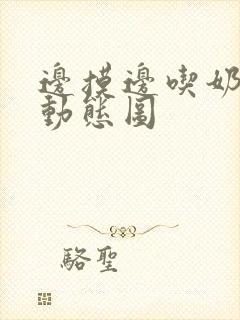 邊摸邊喫奶
動態圖
駱聖